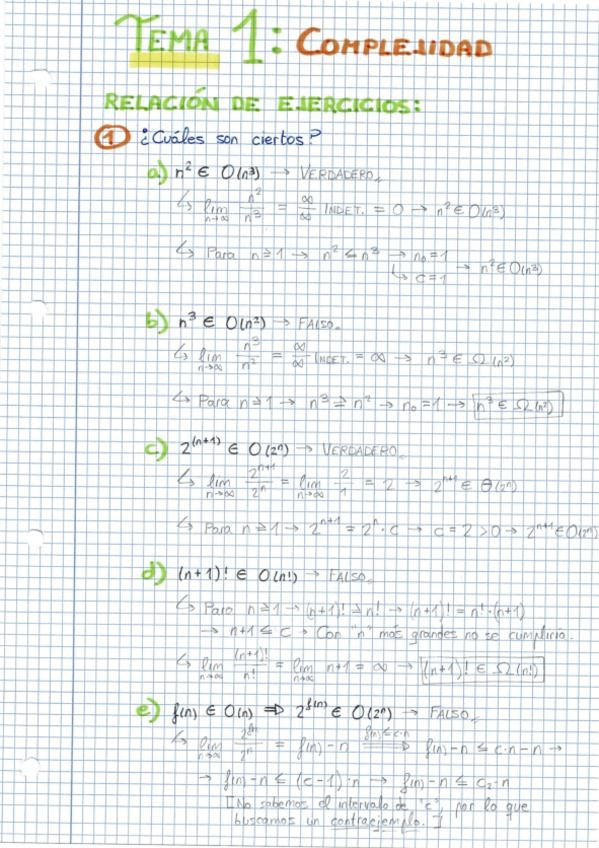 TEMA 1: COMPLEJIDAD
RELACIÓN DE EJERCICIOS:
1 ¿Cuáles son ciertos?
a) n² ∈ O(n³) → VERDADERO.
↳ lim n→∞ n²/n³ = ∞/∞ INDET. = 0 → n² ∈ O(n³)
↳ Para n≥1 → n² ≤ n³ → n₀=1
↳ c=1 → n² ∈ O(n³)
b) n³ ∈ O(n²) → FALSO.
↳ lim n→∞ n³/n² = ∞/∞ INDET. = ∞ → n³ ∈ Ω(n²)
↳ Para n≥1 → n³ ≥ n² → n₀=1 → n³ ∈ Ω(n²)
c) 2^(n+1) ∈ O(2ⁿ) → VERDADERO.
↳ lim n→∞ 2^n+1/2ⁿ = lim n→∞ 2/1 = 2 → 2^n+1 ∈ Θ(2ⁿ)
↳ Para n≥1 → 2^n+1 = 2ⁿ·c → c=2>0 → 2^n+1 ∈ O(2ⁿ)
d) (n+1)! ∈ O(n!) → FALSO.
↳ Para n≥1 → (n+1)! ≥ n! → (n+1)! = n!·(n+1)
→ n+1 ≤ c → Con "n" más grandes no se cumpliría.
↳ lim n→∞ (n+1)!/n! = lim n→∞ n+1 = ∞ → (n+1)! ∈ Ω(n!)
e) f(n) ∈ O(n) ⇒ 2^f(n) ∈ O(2ⁿ) → FALSO.
↳ lim n→∞ 2^f(n)/2ⁿ = f(n)-n f(n)≤c·n ⇒ f(n)-n ≤ c·n-n →
→ f(n)-n ≤ (c-1)·n → f(n)-n ≤ c₂·n
[No sabemos el intervalo de "c", por lo que
buscamos un contraejemplo.]